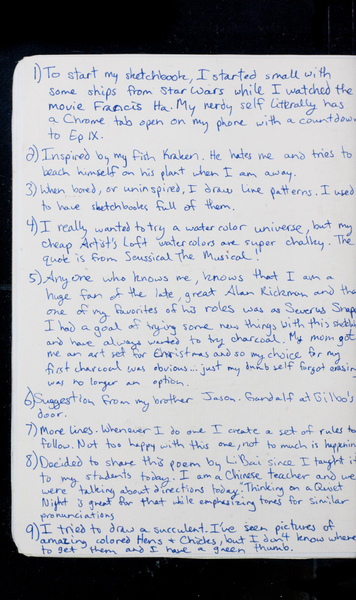 1) To start my sketchbook, I started small with
some ships from Star Wars while I watched the
movie Francis Ha. My nerdy self literally has
a Chrome tab open on my phone with a countdown
to Ep IX.
2) Inspired by my fish Kraken. He hates me and tries to
beach himself on his plant when I am away.
3) When bored, or uninspired, I draw line patterns. I used
to have sketchbooks full of them.
4) I really wanted to try a watercolor universe, but my
cheap Artist's Loft watercolors are super chalky. The
quote is from Seussical The Musical!
5) Anyone who knows me, knows that I am a
huge fan of the late, great Alan Rickman and the
one of my favorites of his roles was as Severus Snape
I had a goal of trying some new things with this sketchbook
and have always wanted to try charcoal. My mom got
me an art set for Christmas and so my choice for my
first charcoal was obvious... just my dumb self forgot erasing
was no longer an option.
6) Suggestion from my brother Jason. Gandalf at Gilbo's
door.
7) More lines. Whenever I do one I create a set of rules to
follow. Not too happy with this one, not to much is happening
8) Decided to share this poem by Li Bai since I taught it
to my students today. I am a Chinese teacher and we
were talking about directions today. Thinking on a Quiet
Night is great for that while emphasizing tones for similar
pronunciations
9) I tried to draw a succulent. I've seen pictures of
amazing colored Hens + Chicks, but I don't know where
to get them and I have a green thumb.